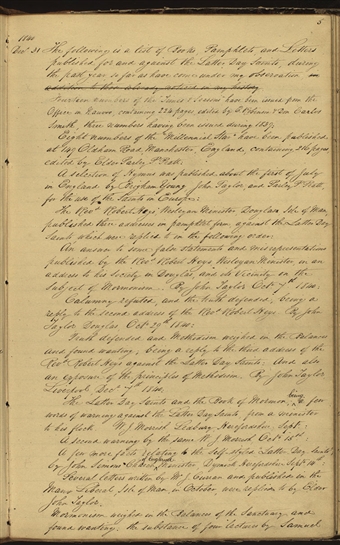 5
1840
Decr. 31 The following is a list of Books, Pamphlets and Letters
published for and against the Latter Day Saints, during
the past year so far as have come under my observation in
addition to those already noticed in my history
Fourteen numbers of the Times & Seasons have been issued from the
Office in Nauvoo, containing 224 pages edited by E. Robinson & Don Carlos
Smith, three numbers having been issued during 1839.
Eight numbers of the Millennial Star have been published
at 149 Oldham Road, Manchester, England, containing 216 pages
edited by Elder Parley P. Pratt.
A selection of Hymns was published about the first of July
in England by Brigham Young, John Taylor, and Parley P. Pratt,
for the use of the Saints in Europe.
The Revd. Robert Heys Wesleyan Minister Douglas Isle of Man,
published three addresses in pamphlet form against the Latter Day
Saints which were replied to in the following order.
An answer to some false statements and misrepresentations
published by the Revd. Robert Heys Wesleyan Minister, in an
address to his Society in Douglas, and its Vicinity on the
Subject of Mormonism. By John Taylor Octr. 7th. 1840.
Calumny refuted, and the truth defended, being a
reply to the second address of the Revd. Robert Heys. By John
Taylor Douglas Octr. 29th. 1840.
Truth defended and Methodism weighed in the Balance
and found wanting, being a reply to the third address of the
Revd. Robert Heys against the Latter Day Saints. And also
an exposure of the principles of Methodism. By John Taylor
Liverpool, Decr. 7th. 1840.
The Latter Day Saints and the Book of Mormon, being a few
words of warning against the Latter Day Saints from a minister
to his flock W. J. Morrish Ledbury Herefordshire, Sept.
A second warning by the same W. J. Morrish Octr. 15th
A few more facts relating to the self-styled "Latter Day Saints"
by John Simons Church of England Minister, Dymock Herefordshire Sept. 14th
Several letters written by Mr. J. Curran and published in the
Manx Liberal Isle of Man, in October, were replied to by Elder
John Taylor.
Mormonism weighed in the Balances of the Sanctuary, and
found wanting, the substance of four lectures by Samuel